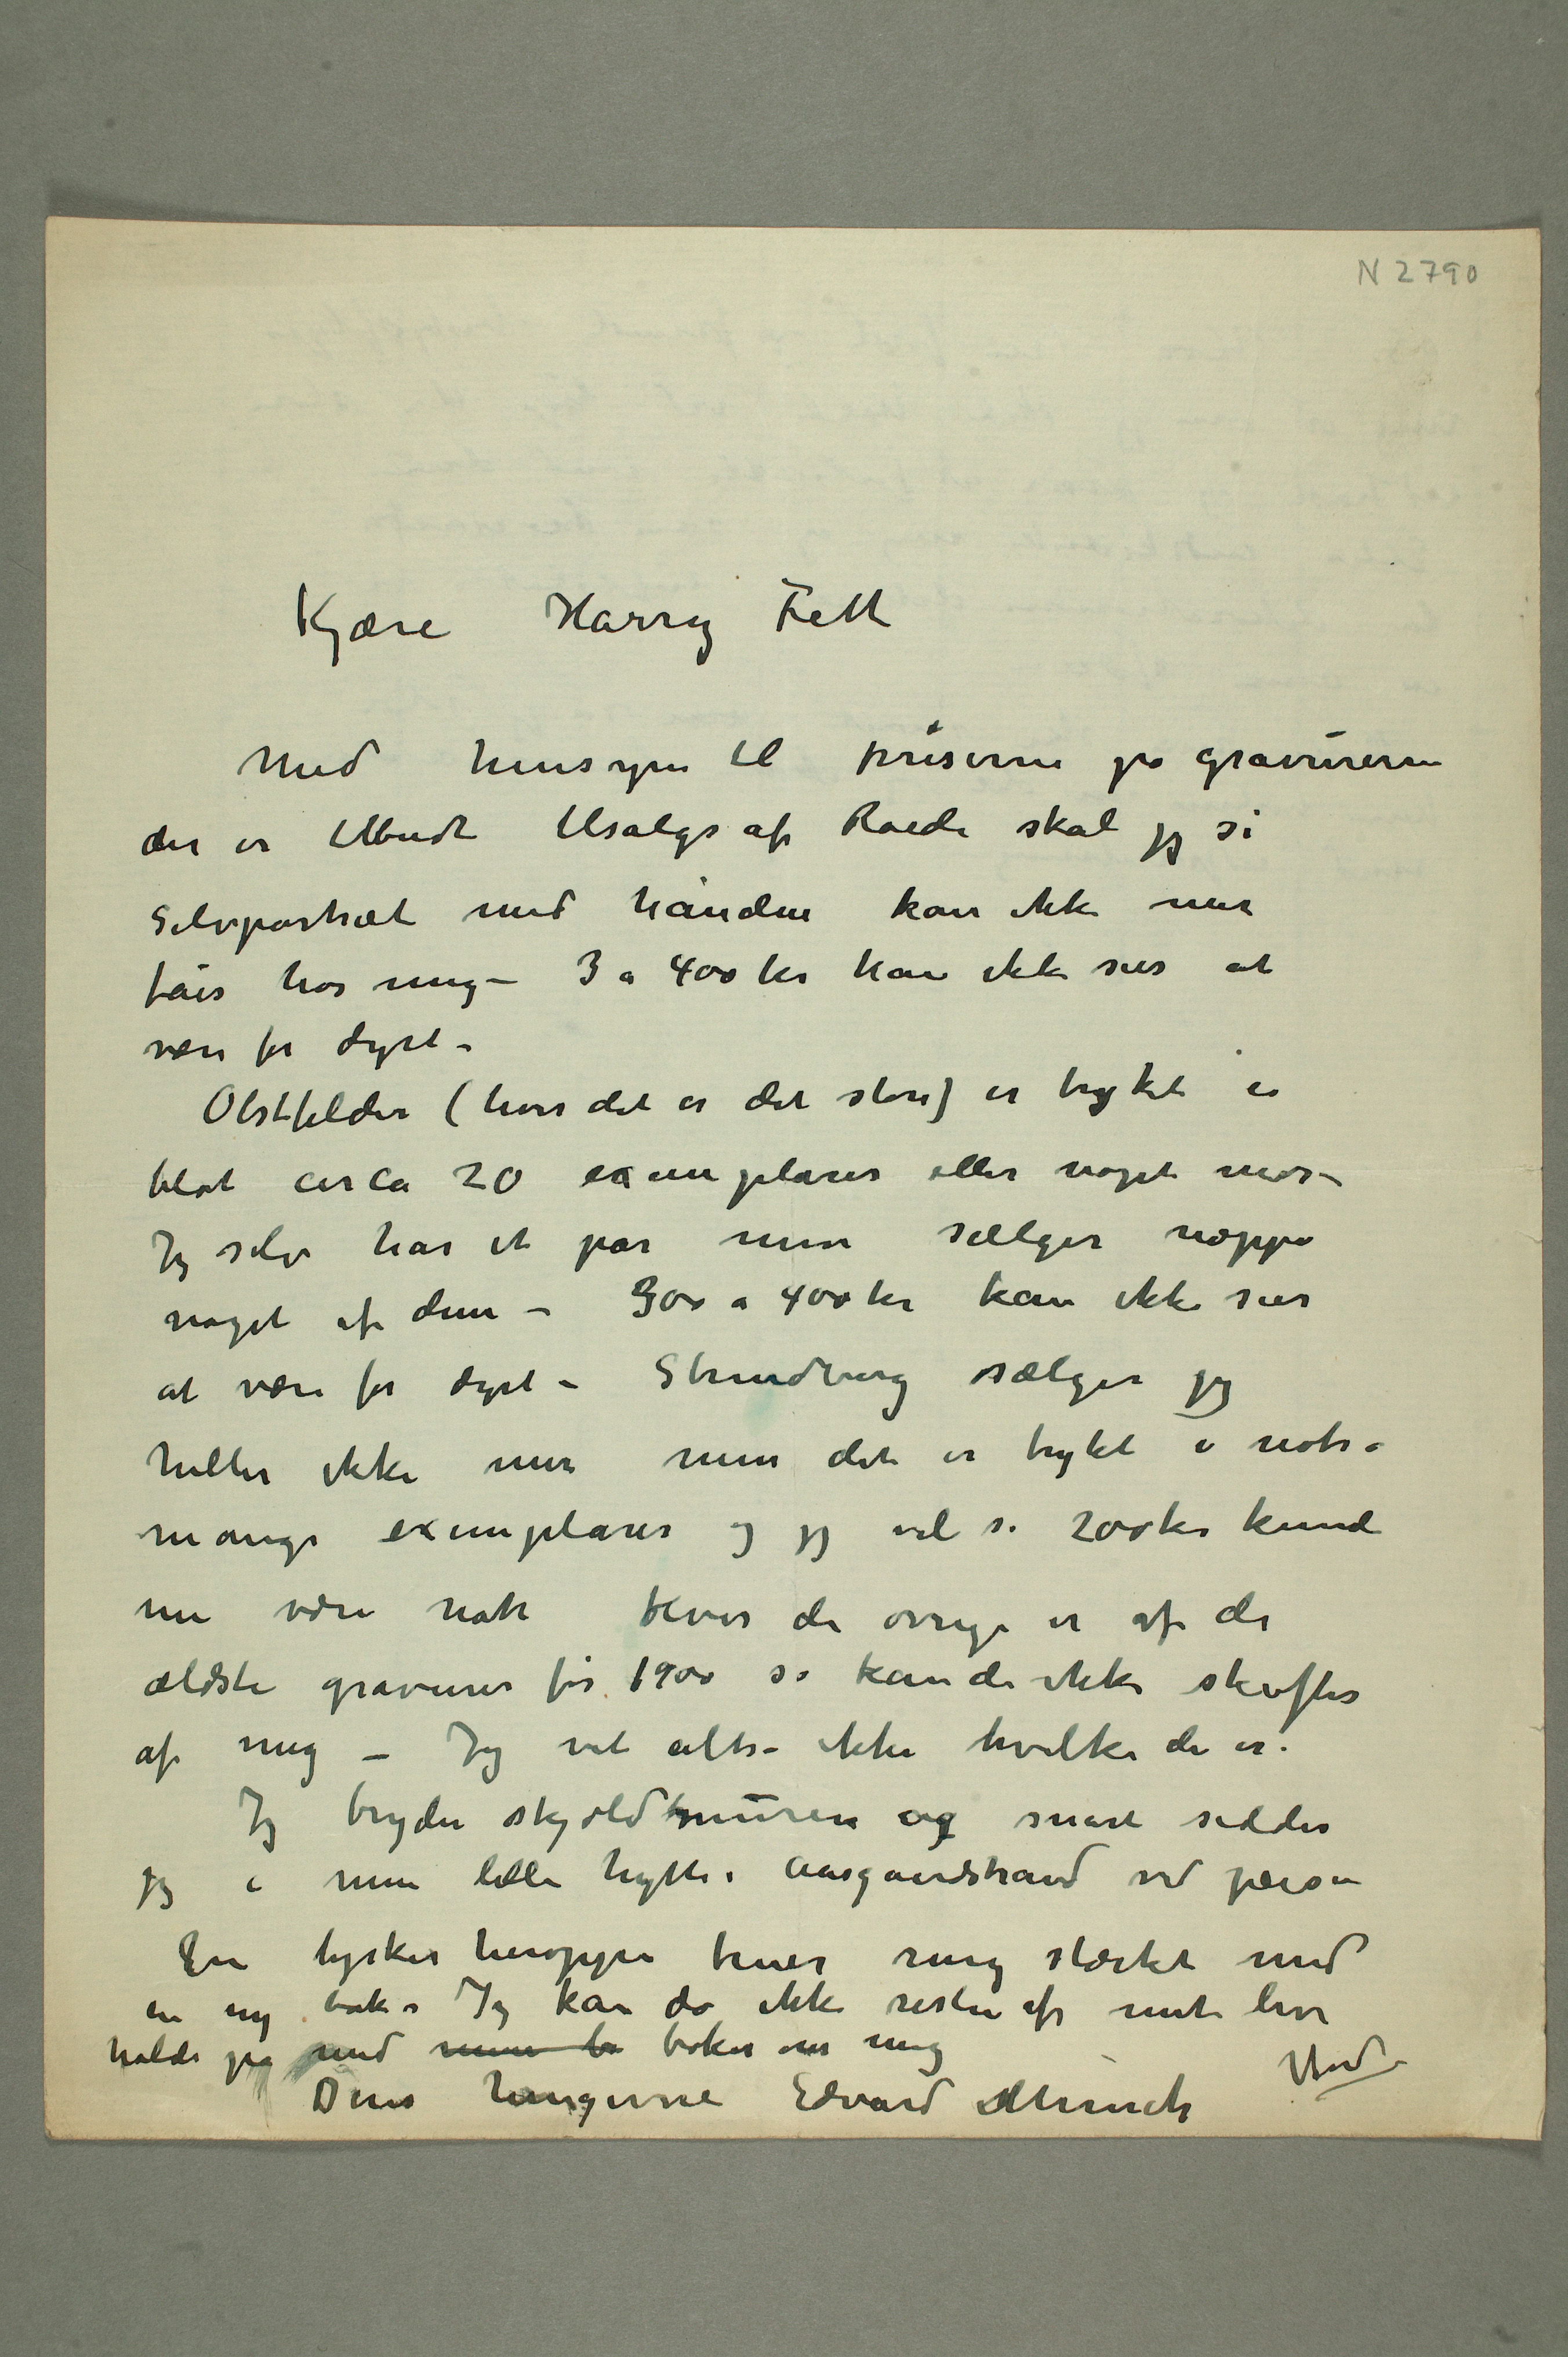 N 2790
Kjære Harry Fett
Med hensyn til priserne på gravurerne
der er tilbudt tilsalgs af Roede skal jeg si
Selvportræt med hånden kan ikke mer
fåes hos mig – 3 a 400 kr kan ikke sies at
være for dyrt –
Obstfelder (hvis det er det store) er trykt i
blot circa 20 exemplarer eller noget mer –
Jeg selv har et par men sælger neppe
noget af dem – 300 a 400 kr kan ikke sies
at være for dyrt – Strindberg sælger jeg
heller ikke mer men det er trykt i nokså
mange exemplarer og jeg vil si 200 kr kunde
nu være nok Hvis de øvrige er af de
ældste gravurer før 1900 så kan de ikke skaffes
af mig – Jeg vet altså ikke hvilke de er.
Jeg bryder skjoldmuren og snart sidder
jeg i min lille hytte i Aasgaardstrand ved pæreøen
En tysker heroppe truer mig stærkt med
en ny bok – Jeg kan da ikke resten af mit liv
holde på med min b bøker om mig
Deres hengivne Edvard Munch
Vend